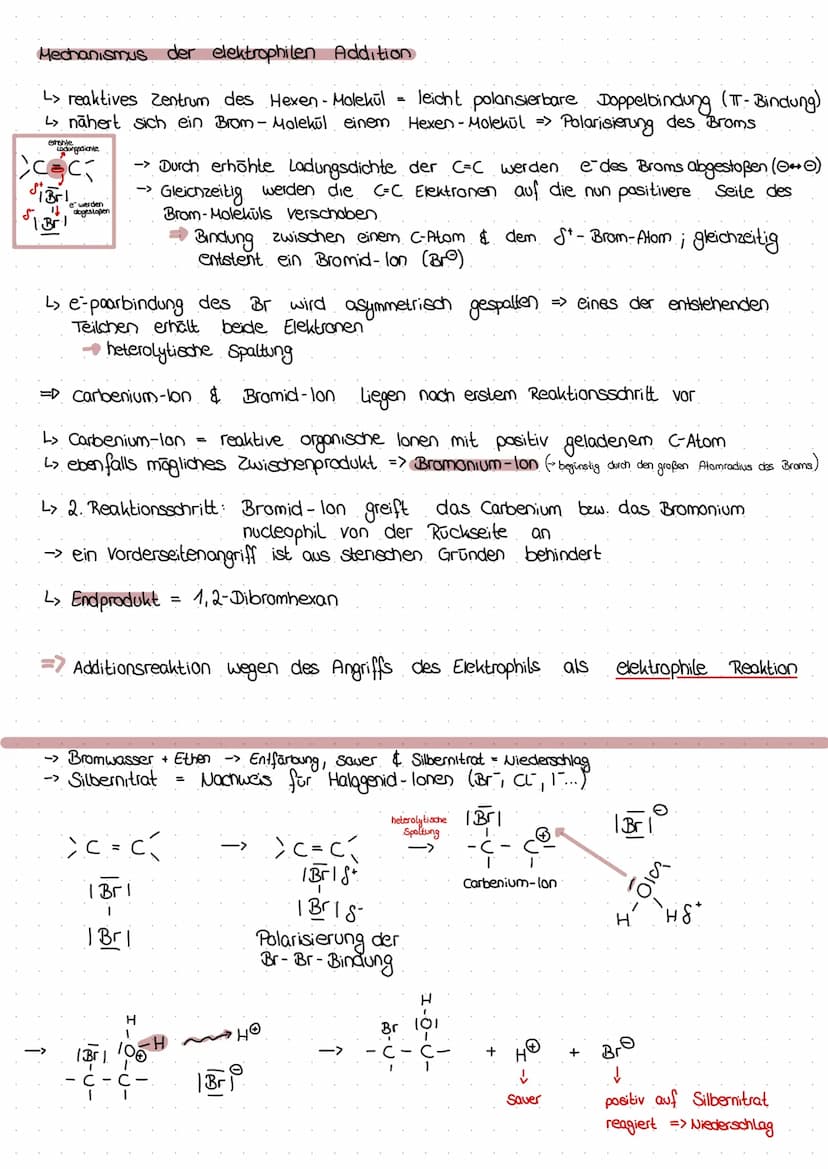 Mechanismus der elektrophilen Addition
↳ reaktives Zentrum des Hexen-Molekül = leicht polarisierbare Doppelbindung (π-Bindung)
↳ nähert sich ein Brom-Molekül einem Hexen-Molekül => Polarisierung des Broms
erhöhte Ladungsdichte
C=C
δ+ |Br|
δ- |Br|
e⁻ werden abgestoßen
-> Durch erhöhte Ladungsdichte der C=C werden e⁻ des Broms abgestoßen (⊖↔⊖)
-> Gleichzeitig werden die C=C Elektronen auf die nun positivere Seite des
Brom-Moleküls verschoben
=> Bindung zwischen einem C-Atom & dem δ+-Brom-Atom ; gleichzeitig
entsteht ein Bromid-Ion (Br⊖)
↳ e⁻-paarbindung des Br wird asymmetrisch gespalten => eines der entstehenden
Teilchen erhält beide Elektronen
-> heterolytische Spaltung
=> Carbenium-Ion & Bromid-Ion liegen nach erstem Reaktionsschritt vor
↳ Carbenium-Ion = reaktive organische Ionen mit positiv geladenem C-Atom
↳ ebenfalls mögliches Zwischenprodukt => Bromonium-Ion (-> begünstig durch den großen Atomradius des Broms)
↳ 2. Reaktionsschritt: Bromid-Ion greift das Carbenium bzw. das Bromonium
nucleophil von der Rückseite an
-> ein Vorderseitenangriff ist aus sterischen Gründen behindert
↳ Endprodukt = 1,2-Dibromhexan
=> Additionsreaktion wegen des Angriffs des Elektrophils als elektrophile Reaktion
-> Bromwasser + Ethen -> Entfärbung, sauer & Silbernitrat = Niederschlag
-> Silbernitrat = Nachweis für Halogenid-Ionen (Br⁻, Cl⁻, I⁻...)
C = C
|Br|
|Br|
->
C = C
|Br| δ+
|Br| δ-
Polarisierung der
Br-Br-Bindung
heterolytische
Spaltung
->
|Br|
-C - C-
⊕
Carbenium-Ion
|Br|⊖
O δ-
H H δ+
->
H
|Br| O⊕-H
-C-C-
H⊕
|Br|⊖
->
H
Br |O|
-C-C- + H⊕ + Br⊖
sauer
positiv auf Silbernitrat
reagiert => Niederschlag